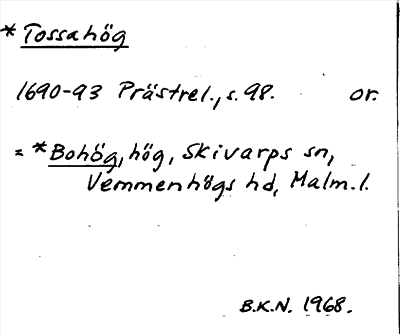 * Tossahög
1690-93 Prästrel., s. 98. or.
= *Bohög, hög, Skivarps sn,
Vemmenhögs hd, Malm. l.
B.K.N. 1968.